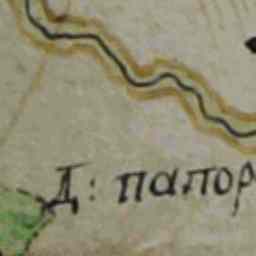 Д: папор